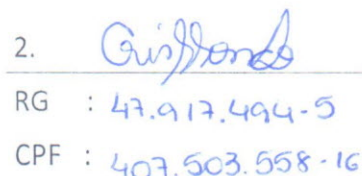 2.
RG : 47.917.494-5
CPF : 407.503.558-16